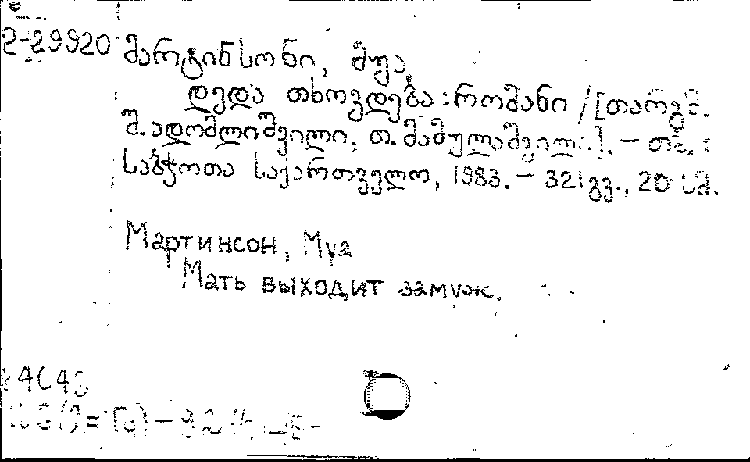 2-29920 მარტინსონი, მუა,
დედა თხოვდება : რომანი / [თარგმ.
შ. ადომლიშვილი, თ. მამულაშვილი]. – თბ. :
საბჭოთა საქართველო, 1983. – 321 გვ., 20 სმ.
Мартинсон, Муа
Мать выходит замуж.